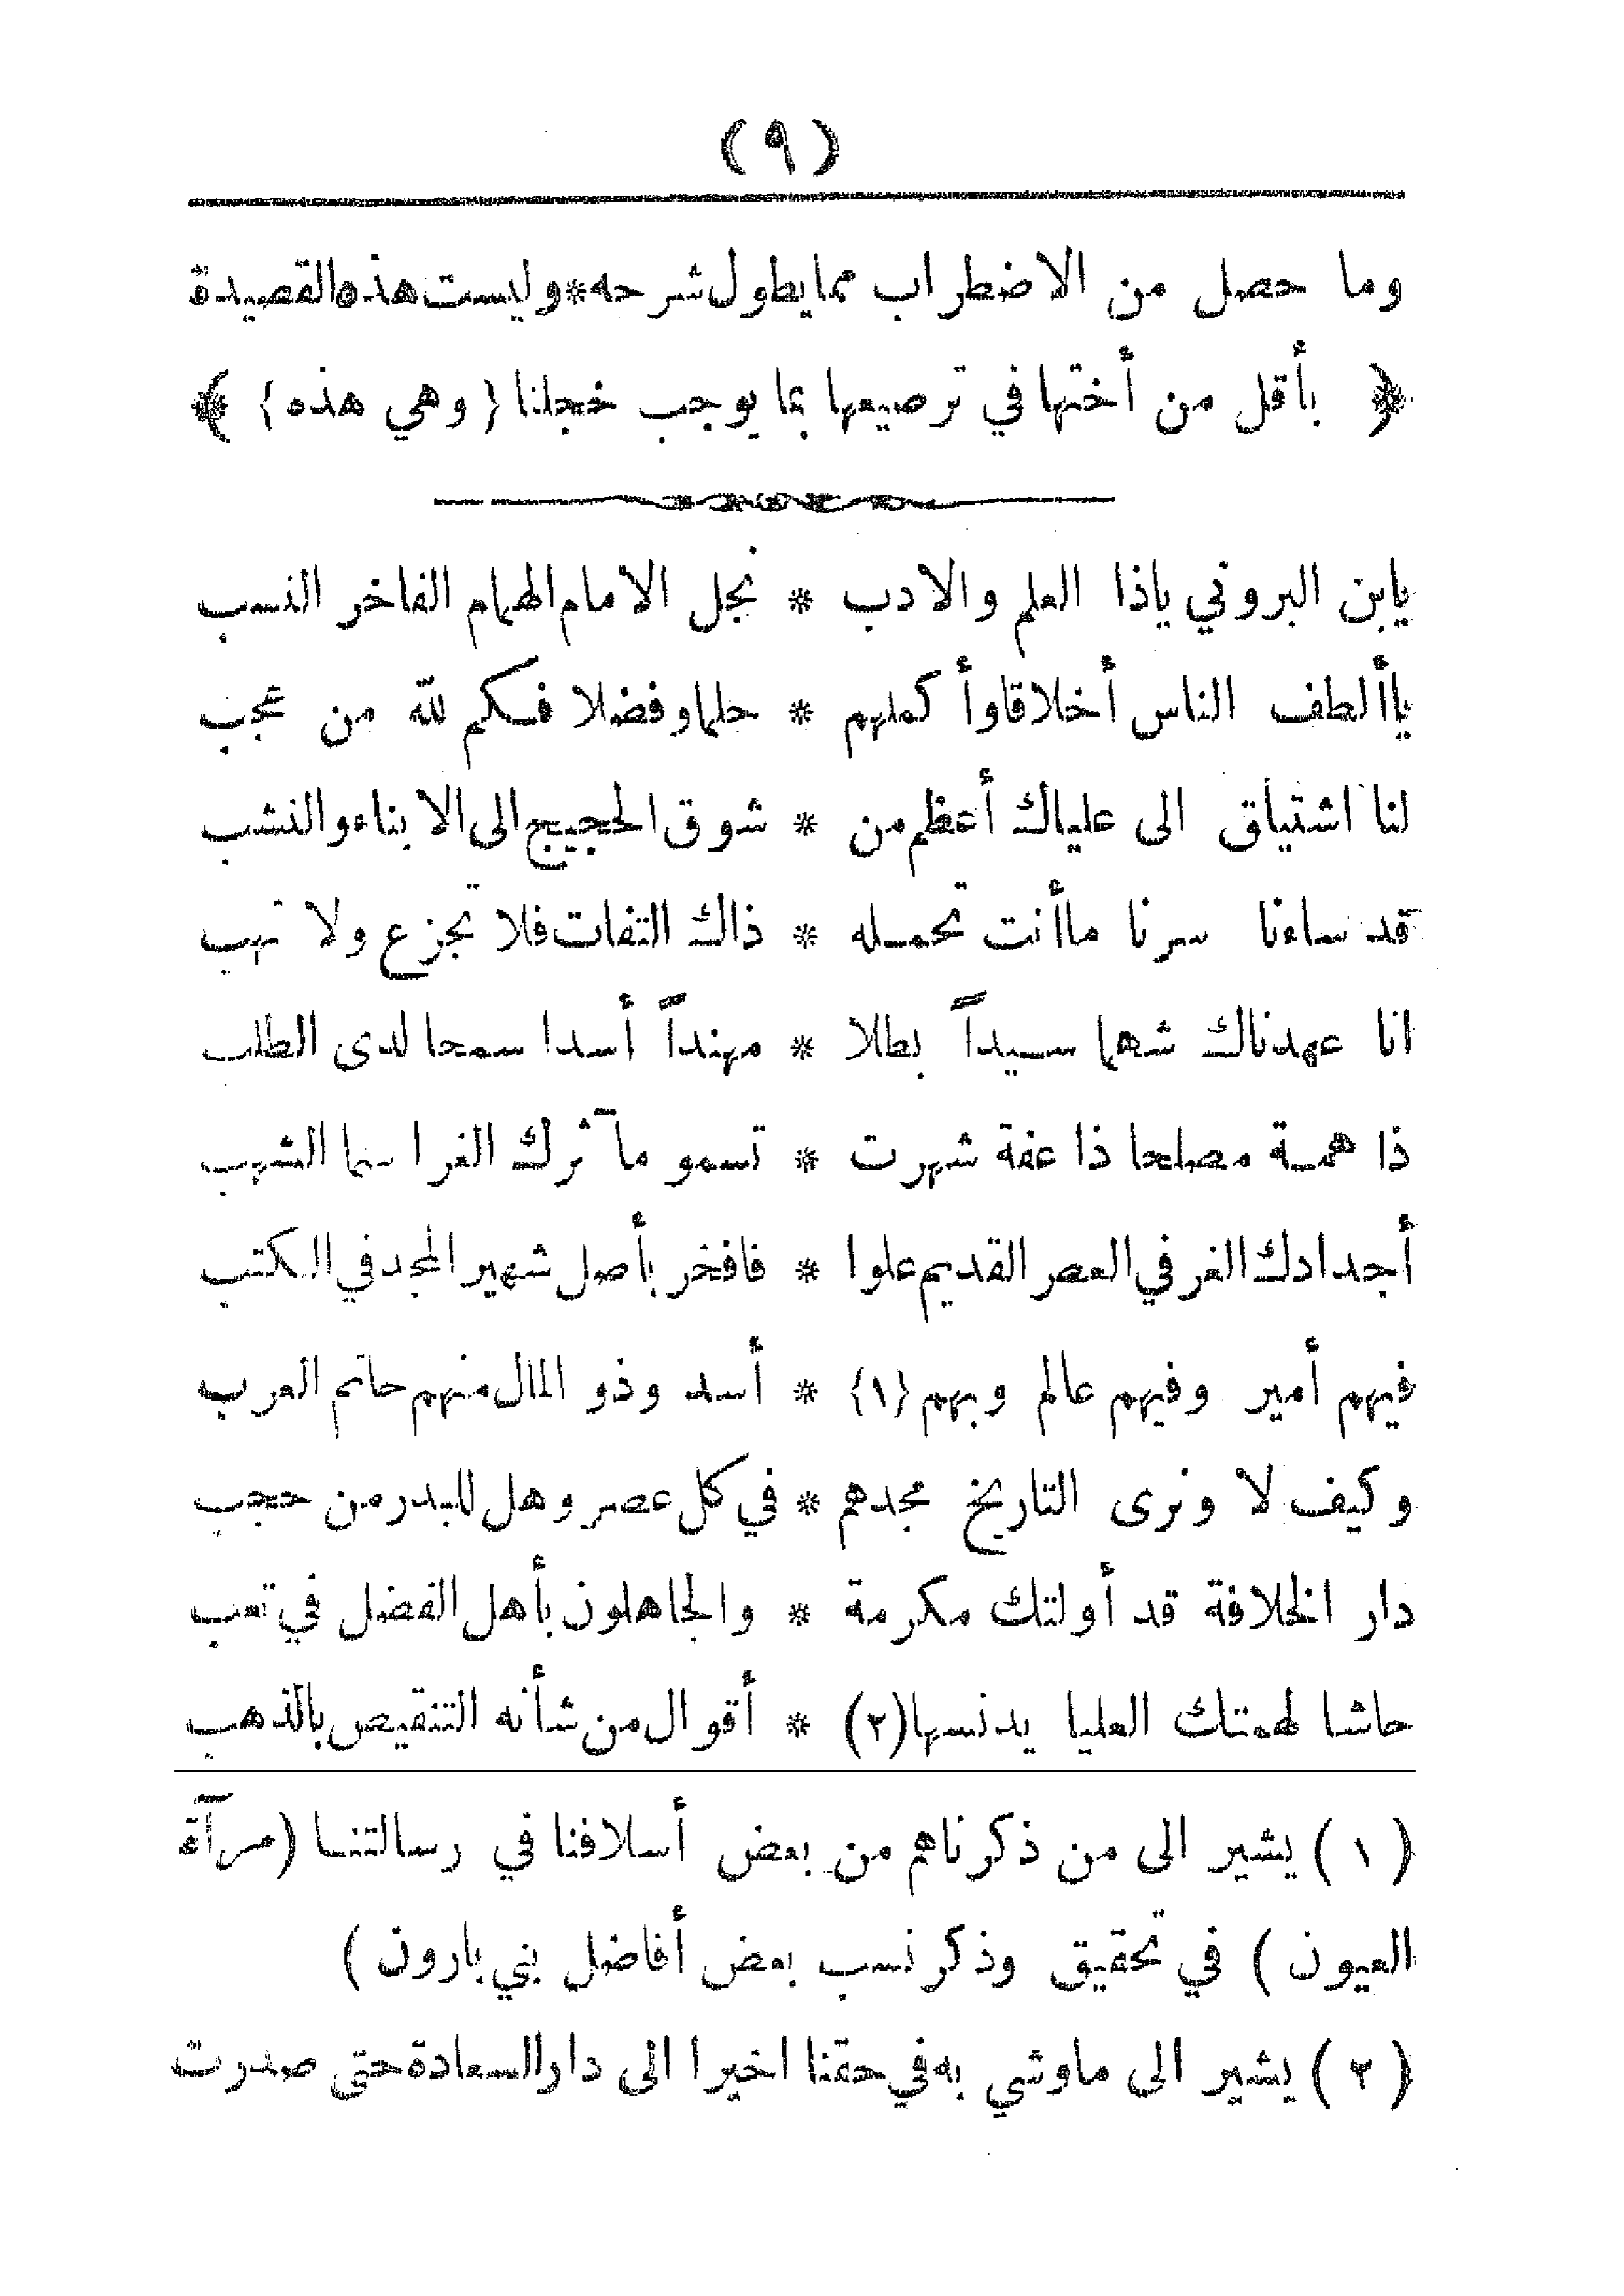 (٩)
وما حصل من الاضطراب مما يطول شرحه * وليست هذه القصيدة
﴿ بأقل من أختها في ترصيعها بما يوجب خجلنا {وهي هذه} ﴾
يابن البروني ياذا العلم والادب * نجل الامام الهمام الفاخر النسب
ياألطف الناس أخلاقا وأكملهم * حلما وفضلا فكم لله من عجب
لنا اشتياق الى علياك أعظم من * شوق الحجيج الى الابناء والنشب
قد ساءنا سرنا ماأنت تحمله * ذاك التفات فلا تجزع ولا تهب
انا عهدناك شهما سيداً بطلا * مهنداً أسدا سمحا لدى الطلب
ذا همة مصلحا ذا عفة شهرت * تسمو مآثرك الغرا سما الشهب
أجدادك الغر في العصر القديم علوا * فافخر بأصل شهير المجد في الكتب
فيهم أمير وفيهم عالم وبهم {١} * أسد وذو المال منهم حاتم العرب
وكيف لا ونرى التاريخ مجدهم * في كل عصر وهل للبدر من حجب
دار الخلافة قد أولتك مكرمة * والجاهلون بأهل الفضل في تعب
حاشا لهمتك العليا يدنسها (٢) * أقوال من شأنه التنقيص بالذهب
(١) يشير الى من ذكرناهم من بعض أسلافنا في رسالتنا (مرآة
العيون ) في تحقيق وذكر نسب بعض أفاضل بني بارون )
(٢) يشير الى ماوشي به في حقنا اخيرا الى دار السعادة حتى صدرت